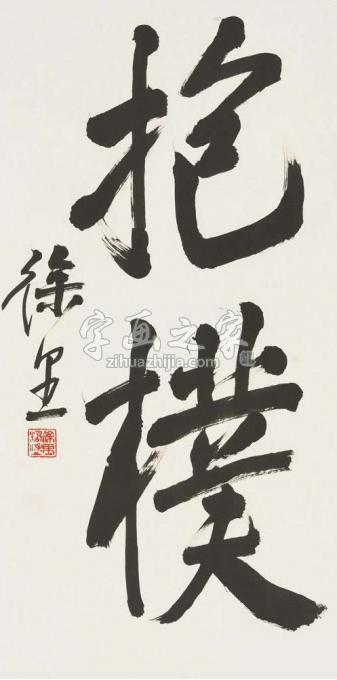 抱樸
徐里
字画之家
zihuazhijia.com